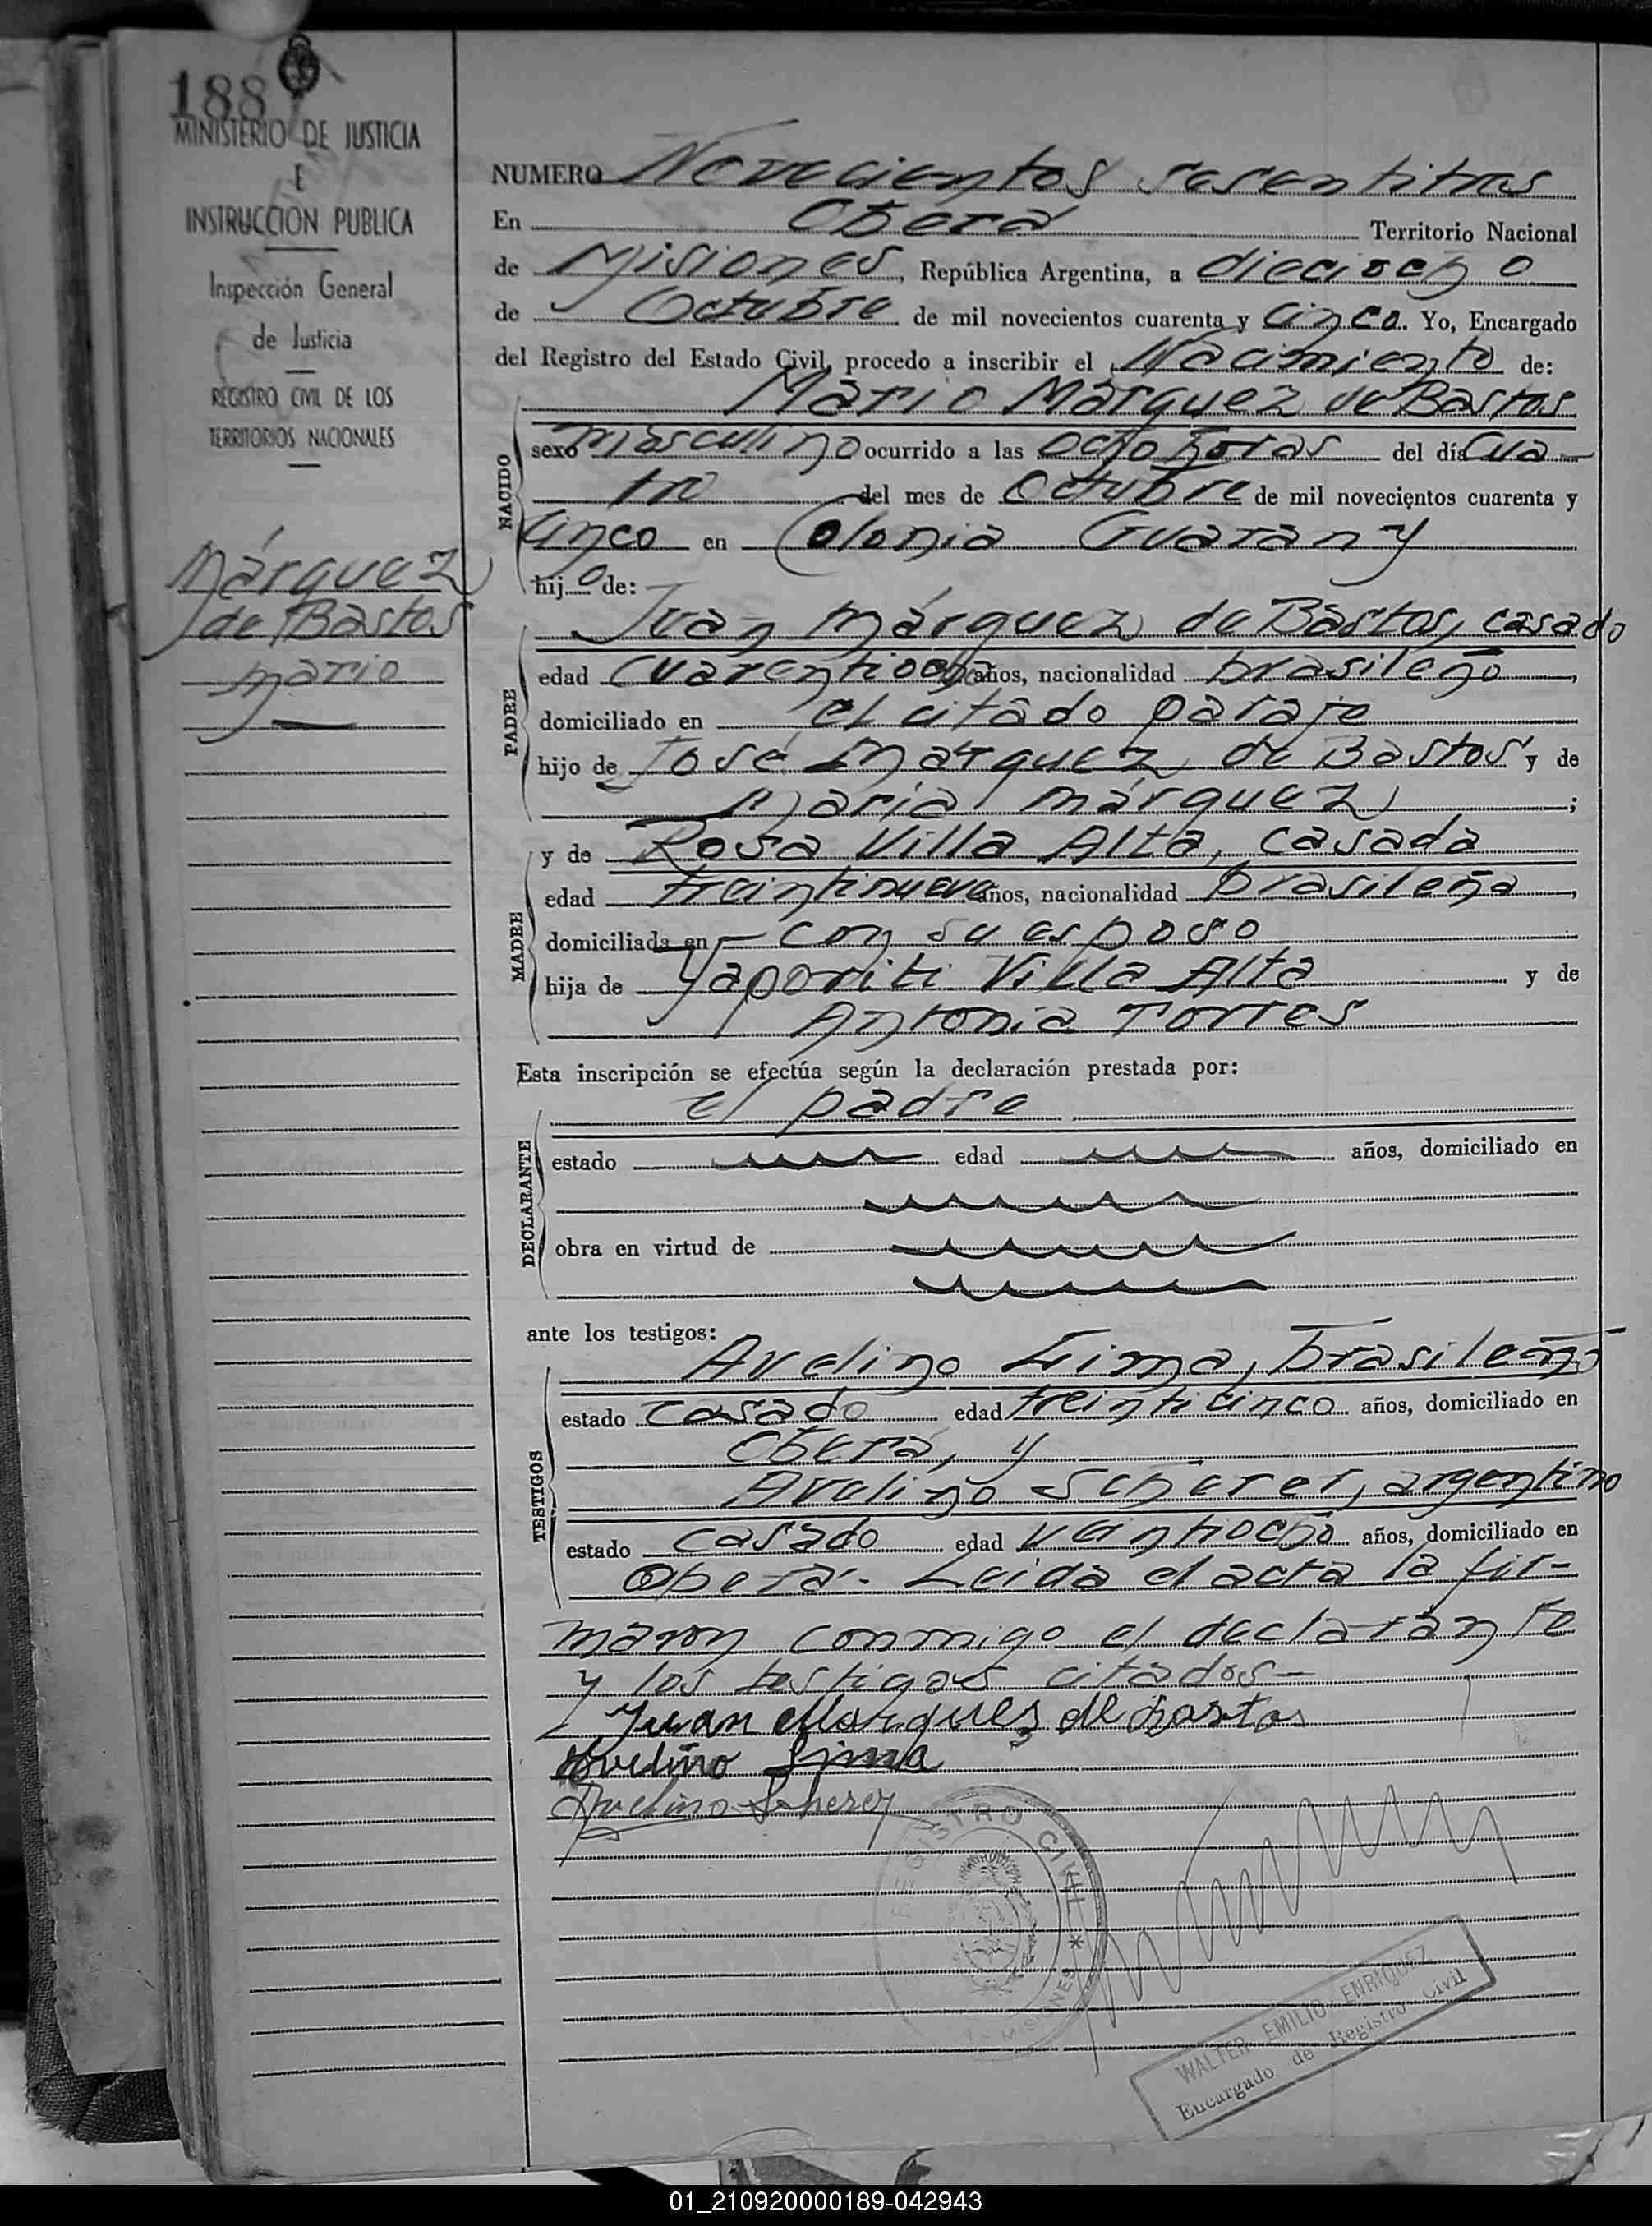 188
MINISTERIO DE JUSTICIA
E
INSTRUCCION PUBLICA
Inspección General
de Justicia
REGISTRO CIVIL DE LOS
TERRITORIOS NACIONALES
Márquez
de Bastos
Mario
NUMERO Novecientos sesentitres
En Oberá Territorio Nacional
de Misiones, República Argentina, a dieciocho
de Octubre de mil novecientos cuarenta y cinco. Yo, Encargado
del Registro del Estado Civil, procedo a inscribir el Nacimiento de:
Mario Márquez de Bastos
NACIDO
sexo masculino ocurrido a las ocho horas del día cua-
tro del mes de Octubre de mil novecientos cuarenta y
cinco en Colonia Guarany
hijo de:
Juan Márquez de Bastos, casado
PADRE
edad cuarentiocho años, nacionalidad brasileño,
domiciliado en el citado paraje
hijo de José Márquez de Bastos y de
María Márquez;
y de Rosa Villa Alta, casada
MADRE
edad treintinueve años, nacionalidad brasileña,
domiciliada en con su esposo
hija de Yaporiti Villa Alta y de
Antonia Torres
Esta inscripción se efectúa según la declaración prestada por:
el padre
DECLARANTE
estado edad años, domiciliado en
obra en virtud de
ante los testigos:
Avelino Lima, brasileño
TESTIGOS
estado casado edad treinticinco años, domiciliado en
Oberá, y
Avelino Scherer, argentino
estado casado edad veintiocho años, domiciliado en
Oberá. Leída el acta la fir-
maron conmigo el declarante
y los testigos citados-
Juan Marques de Bastos
Avelino Lima
Avelino Scherer
REGISTRO CIVIL * MISIONES
WALTER EMILIO ENRIQUEZ
Encargado de Registro Civil
01_210920000189-042943